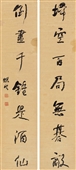 掃空百局無棊敵
倒盡千鍾是酒仙